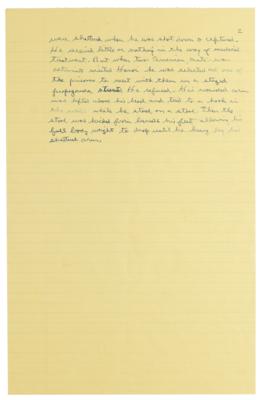 2
were shattered when he was shot down & captured.
He received little or nothing in the way of medical
treatment. But when two American anti-war
activists visited Hanoi he was selected as one of
the prisoners to meet with them in a staged
propaganda stunt. He refused. His wounded arm
was lifted above his head and tied to a hook in
the while he stood on a stool. Then the
stool was kicked from beneath his feet allowing his
full body weight to drop until he hung by his
shattered arm.